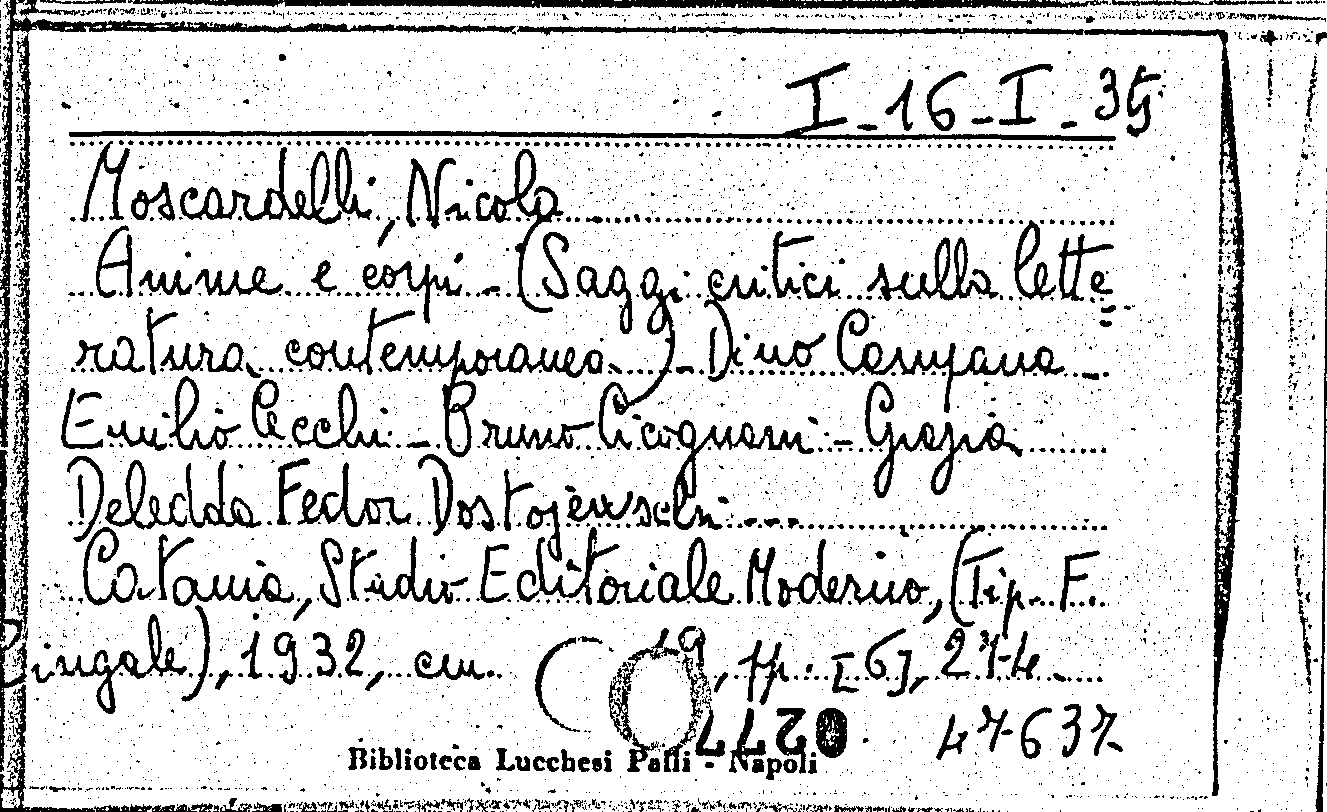 I-16-I-35
Moscardelli, Nicola
Anime e corpi - (Saggi critici sulla lette=
ratura contemporanea) - Dino Campana -
Emilio Cecchi - Bruno Cicognani - Grazia
Deledda Fedor Dostojewschi ...
Catania, Studio Editoriale Moderno, (Tip. F.
Zingale), 1932, cm. 19, pp. [6], 274
47637
Biblioteca Lucchesi Palli - Napoli